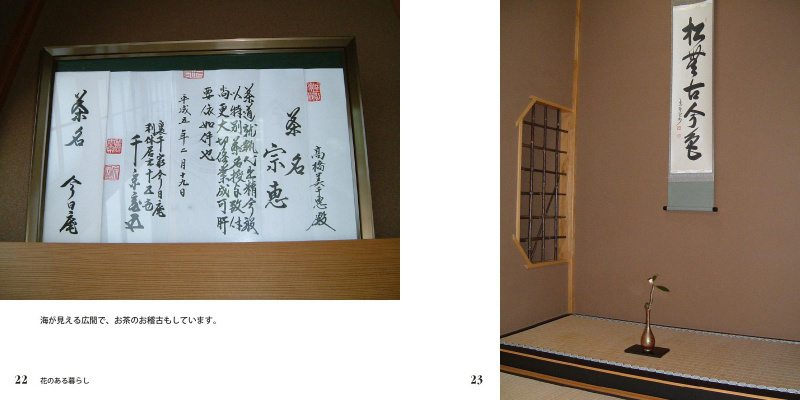 茶名
宗恵
高橋美千恵殿
茶道執心
今般
以特別
茶名授与致候
尚更大切
成可肝
要依如件也
平成五年二月十九日
裏千家今日庵
利休居士十五世
千
茶名
今日庵
松無古今色
海が見える広間で、お茶のお稽古もしています。
22
花のある暮らし
23